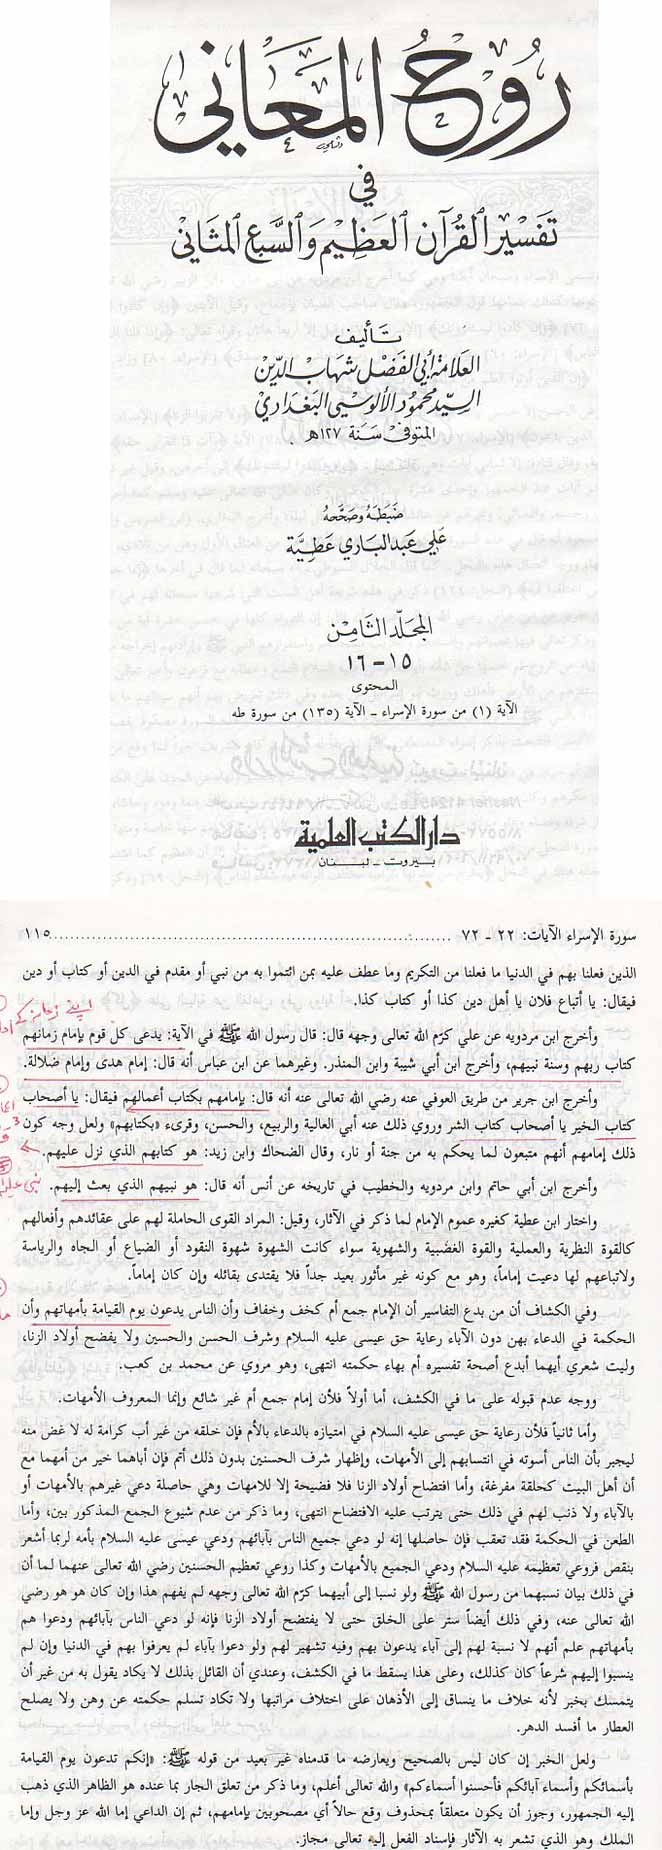 روح المعاني
في
تفسير القرآن العظيم والسبع المثاني
تأليف
العلامة أبي الفضل شهاب الدين
السيد محمود الألوسي البغدادي
المتوفى سنة ١٢٧ هـ
ضبطه وصححه
علي عبد الباري عطية
المجلد الثامن
١٥ - ١٦
المحتوى
الآية (١) من سورة الإسراء - الآية (١٣٥) من سورة طه
دار الكتب العلمية
بيروت - لبنان
سورة الإسراء الآيات: ٢٢ - ٧٢ ........ ١١٥
الذين فعلنا بهم في الدنيا ما فعلنا من التكريم وما عطف عليه بمن ائتموا به من نبي أو مقدم في الدين أو كتاب أو دين
فيقال: يا أتباع فلان يا أهل دين كذا أو كتاب كذا.
وأخرج ابن مردويه عن علي كرّم الله تعالى وجهه قال: قال رسول الله ﷺ في الآية: يدعى كل قوم بإمام زمانهم
كتاب ربهم وسنة نبيهم، وأخرج ابن أبي شيبة وابن المنذر. وغيرهما عن ابن عباس أنه قال: إمام هدى وإمام ضلالة.
وأخرج ابن جرير من طريق العوفي عنه رضي الله تعالى عنه أنه قال: بإمامهم بكتاب أعمالهم فيقال: يا أصحاب
كتاب الخير يا أصحاب كتاب الشر وروي ذلك عنه أبي العالية والربيع، والحسن، وقرىء «بكتابهم» ولعل وجه كون
ذلك إمامهم أنهم متبعون لما يحكم به من جنة أو نار، وقال الضحاك وابن زيد: هو كتابهم الذي نزل عليهم.
وأخرج ابن أبي حاتم وابن مردويه والخطيب في تاريخه عن أنس أنه قال: هو نبيهم الذي بعث إليهم.
واختار ابن عطية كغيره عموم الإمام لما ذكر في الآثار، وقيل: المراد القوى الحاملة لهم على عقائدهم وأفعالهم
كالقوة النظرية والعملية والقوة الغضبية والشهوية سواء كانت الشهوة شهوة النقود أو الضياع أو الجاه والرياسة
ولاتباعهم لها دعيت إماماً، وهو مع كونه غير مأثور بعيد جداً فلا يقتدى بقائله وإن كان إماماً.
وفي الكشاف أن من بدع التفاسير أن الإمام جمع أم كخف وخفاف وأن الناس يدعون يوم القيامة بأمهاتهم وأن
الحكمة في الدعاء بهن دون الآباء رعاية حق عيسى عليه السلام وشرف الحسن والحسين ولا يفضح أولاد الزنا،
وليت شعري أيهما أبدع أصحة تفسيره أم بهاء حكمته انتهى، وهو مروي عن محمد بن كعب.
ووجه عدم قبوله على ما في الكشف، أما أولاً فلأن إمام جمع أم غير شائع وإنما المعروف الأمهات.
وأما ثانياً فلأن رعاية حق عيسى عليه السلام في امتيازه بالدعاء بالأم فإن خلقه من غير أب كرامة له لا غض منه
ليجبر بأن الناس أسوته في انتسابهم إلى الأمهات، وإظهار شرف الحسنين بدون ذلك أتم فإن أباهما خير من أمهما مع
أن أهل البيت كحلقة مفرغة، وأما افتضاح أولاد الزنا فلا فضيحة إلا للأمهات وهي حاصلة دعي غيرهم بالأمهات أو
بالآباء ولا ذنب لهم في ذلك حتى يترتب عليه الافتضاح انتهى، وما ذكر من عدم شيوع الجمع المذكور بين، وأما
الطعن في الحكمة فقد تعقب فإن حاصلها إنه لو دعي جميع الناس بآبائهم ودعي عيسى عليه السلام بأمه لربما أشعر
بنقص فروعي تعظيمه عليه السلام ودعي الجميع بالأمهات وكذا روعي تعظيم الحسنين رضي الله تعالى عنهما لما أن
في ذلك بيان نسبهما من رسول الله ﷺ ولو نسبا إلى أبيهما كرّم الله تعالى وجهه لم يفهم هذا وإن كان هو هو رضي
الله تعالى عنه، وفي ذلك أيضاً ستر على الخلق حتى لا يفتضح أولاد الزنا فإنه لو دعي الناس بآبائهم ودعوا هم
بأمهاتهم علم أنهم لا نسبة لهم إلى آباء يدعون بهم وفيه تشهير لهم ولو دعوا بآباء لم يعرفوا بهم في الدنيا وإن لم
ينسبوا إليهم شرعاً كان كذلك، وعلى هذا يسقط ما في الكشف، وعندي أن القائل بذلك لا يكاد يقول به من غير أن
يتمسك بخبر لأنه خلاف ما ينساق إلى الأذهان على اختلاف مراتبها ولا تكاد تسلم حكمته عن وهن ولا يصلح
العطار ما أفسد الدهر.
ولعل الخبر إن كان ليس بالصحيح ويعارضه ما قدمناه غير بعيد من قوله ﷺ: «إنكم تدعون يوم القيامة
بأسمائكم وأسماء آبائكم فأحسنوا أسماءكم» والله تعالى أعلم، وما ذكر من تعلق الجار بما عنده هو الظاهر الذي ذهب
إليه الجمهور، وجوز أن يكون متعلقاً بمحذوف وقع حالاً أي مصحوبين بإمامهم، ثم إن الداعي إما الله عز وجل وإما
الملك وهو الذي تشعر به الآثار فإسناد الفعل إليه تعالى مجاز.